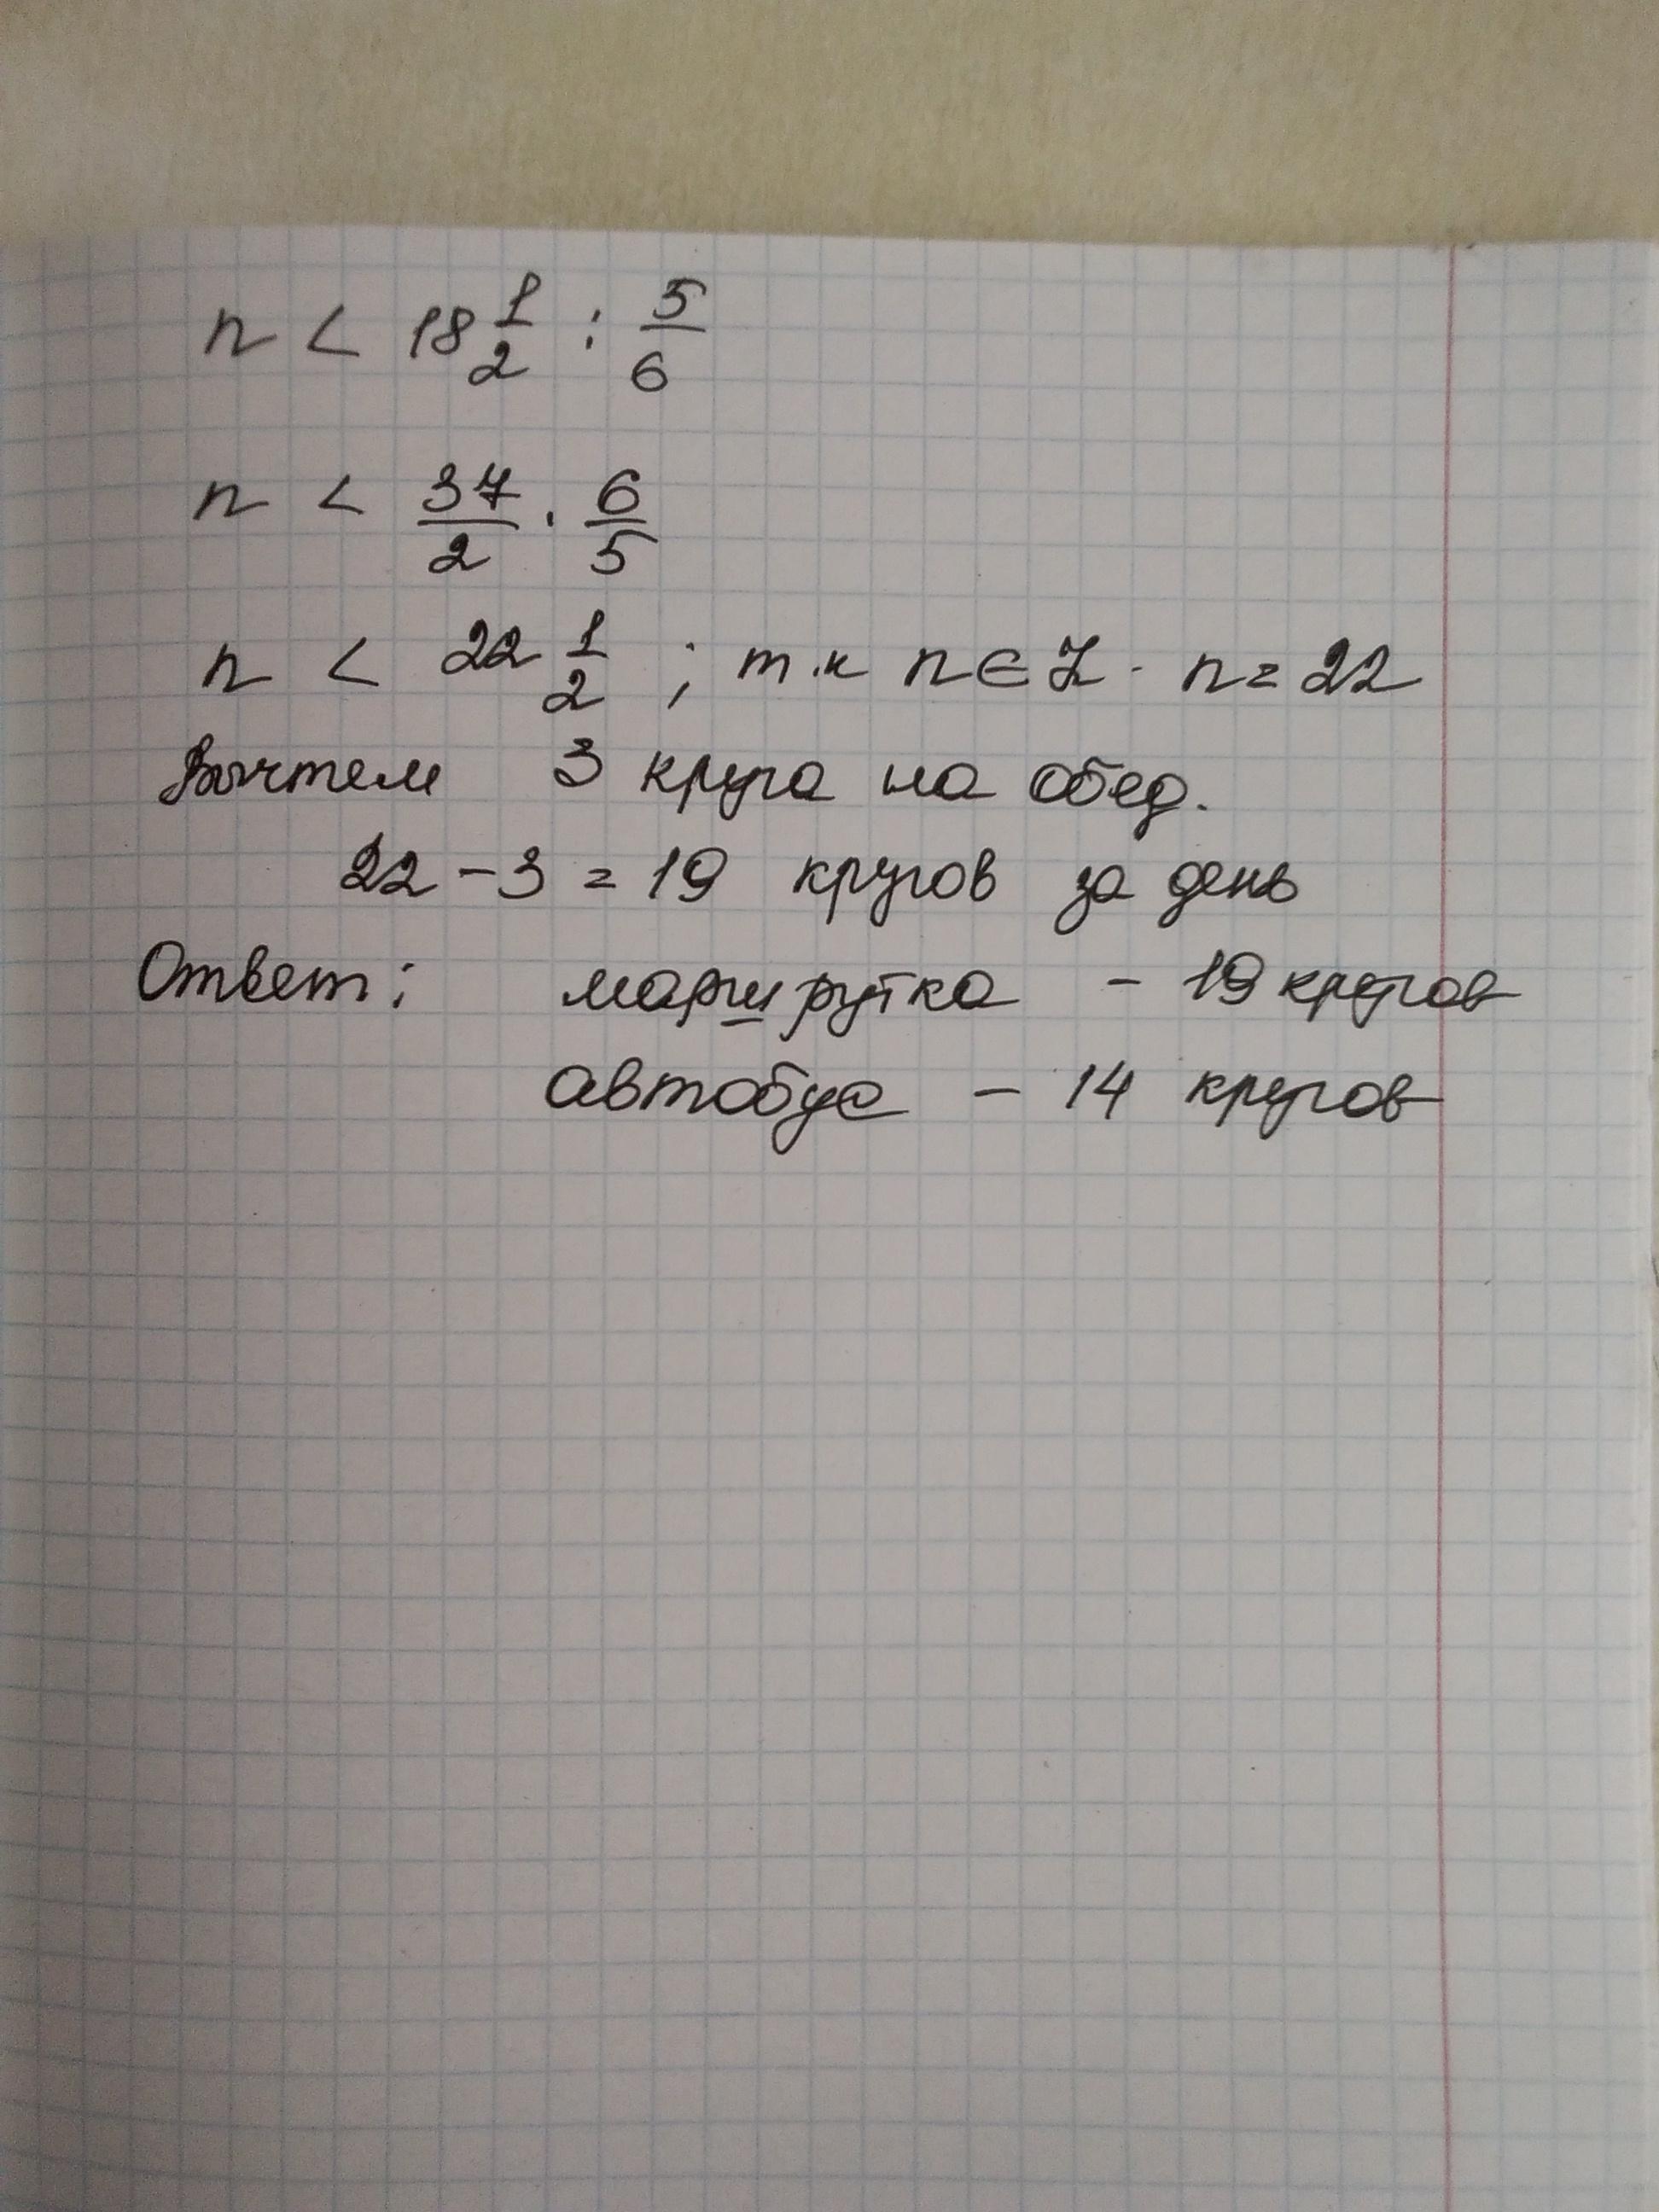 n < 18 1/2 : 5/6
n < 37/2 · 6/5
n < 22 1/2 ; т.к n ∈ Z · n = 22
Вычтем 3 круга на обед.
22 - 3 = 19 кругов за день
Ответ: маршрутка - 19 кругов
автобус - 14 кругов